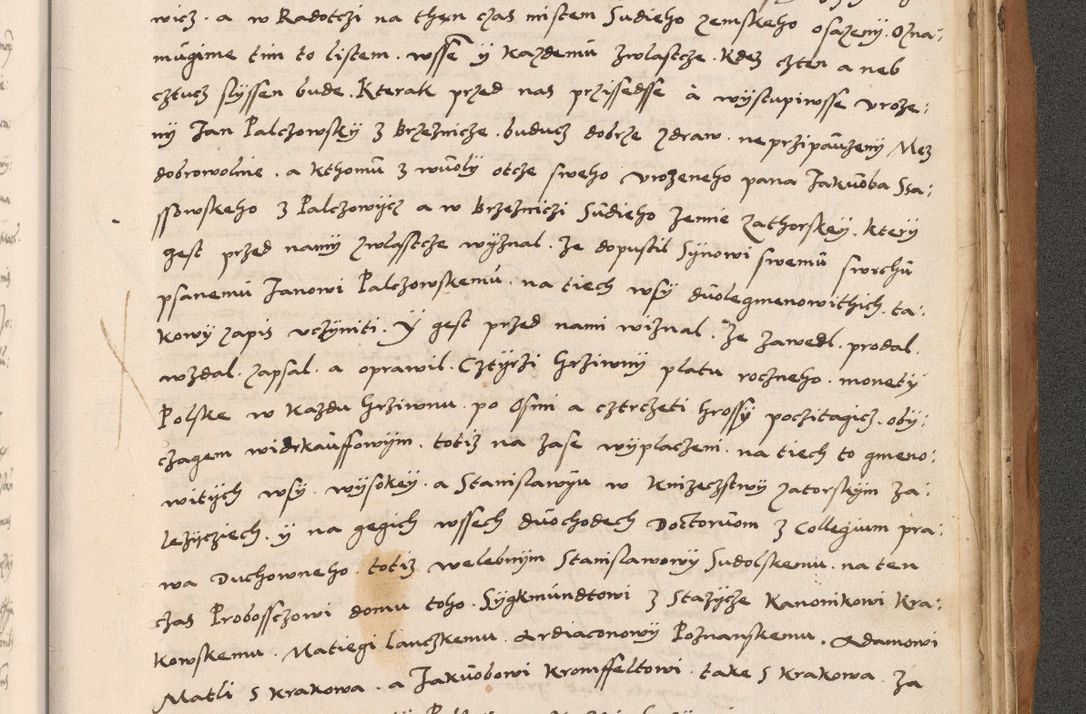 wicz. a w Radotczi na then czas mistem Sudieho zemskeho osazeny. Ozna:
mugime tim to listem. wsse y kazdemu zwlastcze. kdez czten a neb
cztucz slyssen bude. Kterak przed nas przissedsse a wystupiwsse vroze:
ny Jan Palczowsky z brzeznicze. buducz dobrze zdraw. neprzipauzeny Mez
dobrowolne. a kthomu z wuoly otcze sweho vrozeneho pana Jakuoba Ssa:
ssowskeho z Palczowycz a w brzezniczi Sudieho Zemie Zathorskey. ktery
gest przed namy zwlasstcze wyznal. Ze dopustil Synowi swemu swrchu
psanemu Janowi Palczowskemu. na tiech wsy duolegmenowithich. ta:
kowy zapis vczyniti. Y gest przed nami wiznal. Ze zawedl. prodal.
wzdal. zapsal. a oprawil. Cztyrzi hrziwny platu roczneho. monety
Polske w kazdu hrziwnu. po Osmi a cztrczeti hrossy poczitagicz. oby:
czagem widrkauffowym. totiz na zase wyplaczeni. na tiech to gmeno:
witych wsy. wysokey. a Stanislawyu w knizeczstwy zatorskym za:
lezyczich. y na gegich wssech duochodech Doctoruom z Collegium pra:
wa Duchowneho. totiz welebnym Stanislawowy Sudolskemu. na ten
czas Probossczowi domu toho. Sygkmundtowi z Stazycze kanonikowi kra:
kowskemu. Matiegi lanczkemu. Ardiaconowy Poznanskemu. Adamowi
Matli s krakowa. a Jakuobowi kromffeltowi. take s krakowa. Za